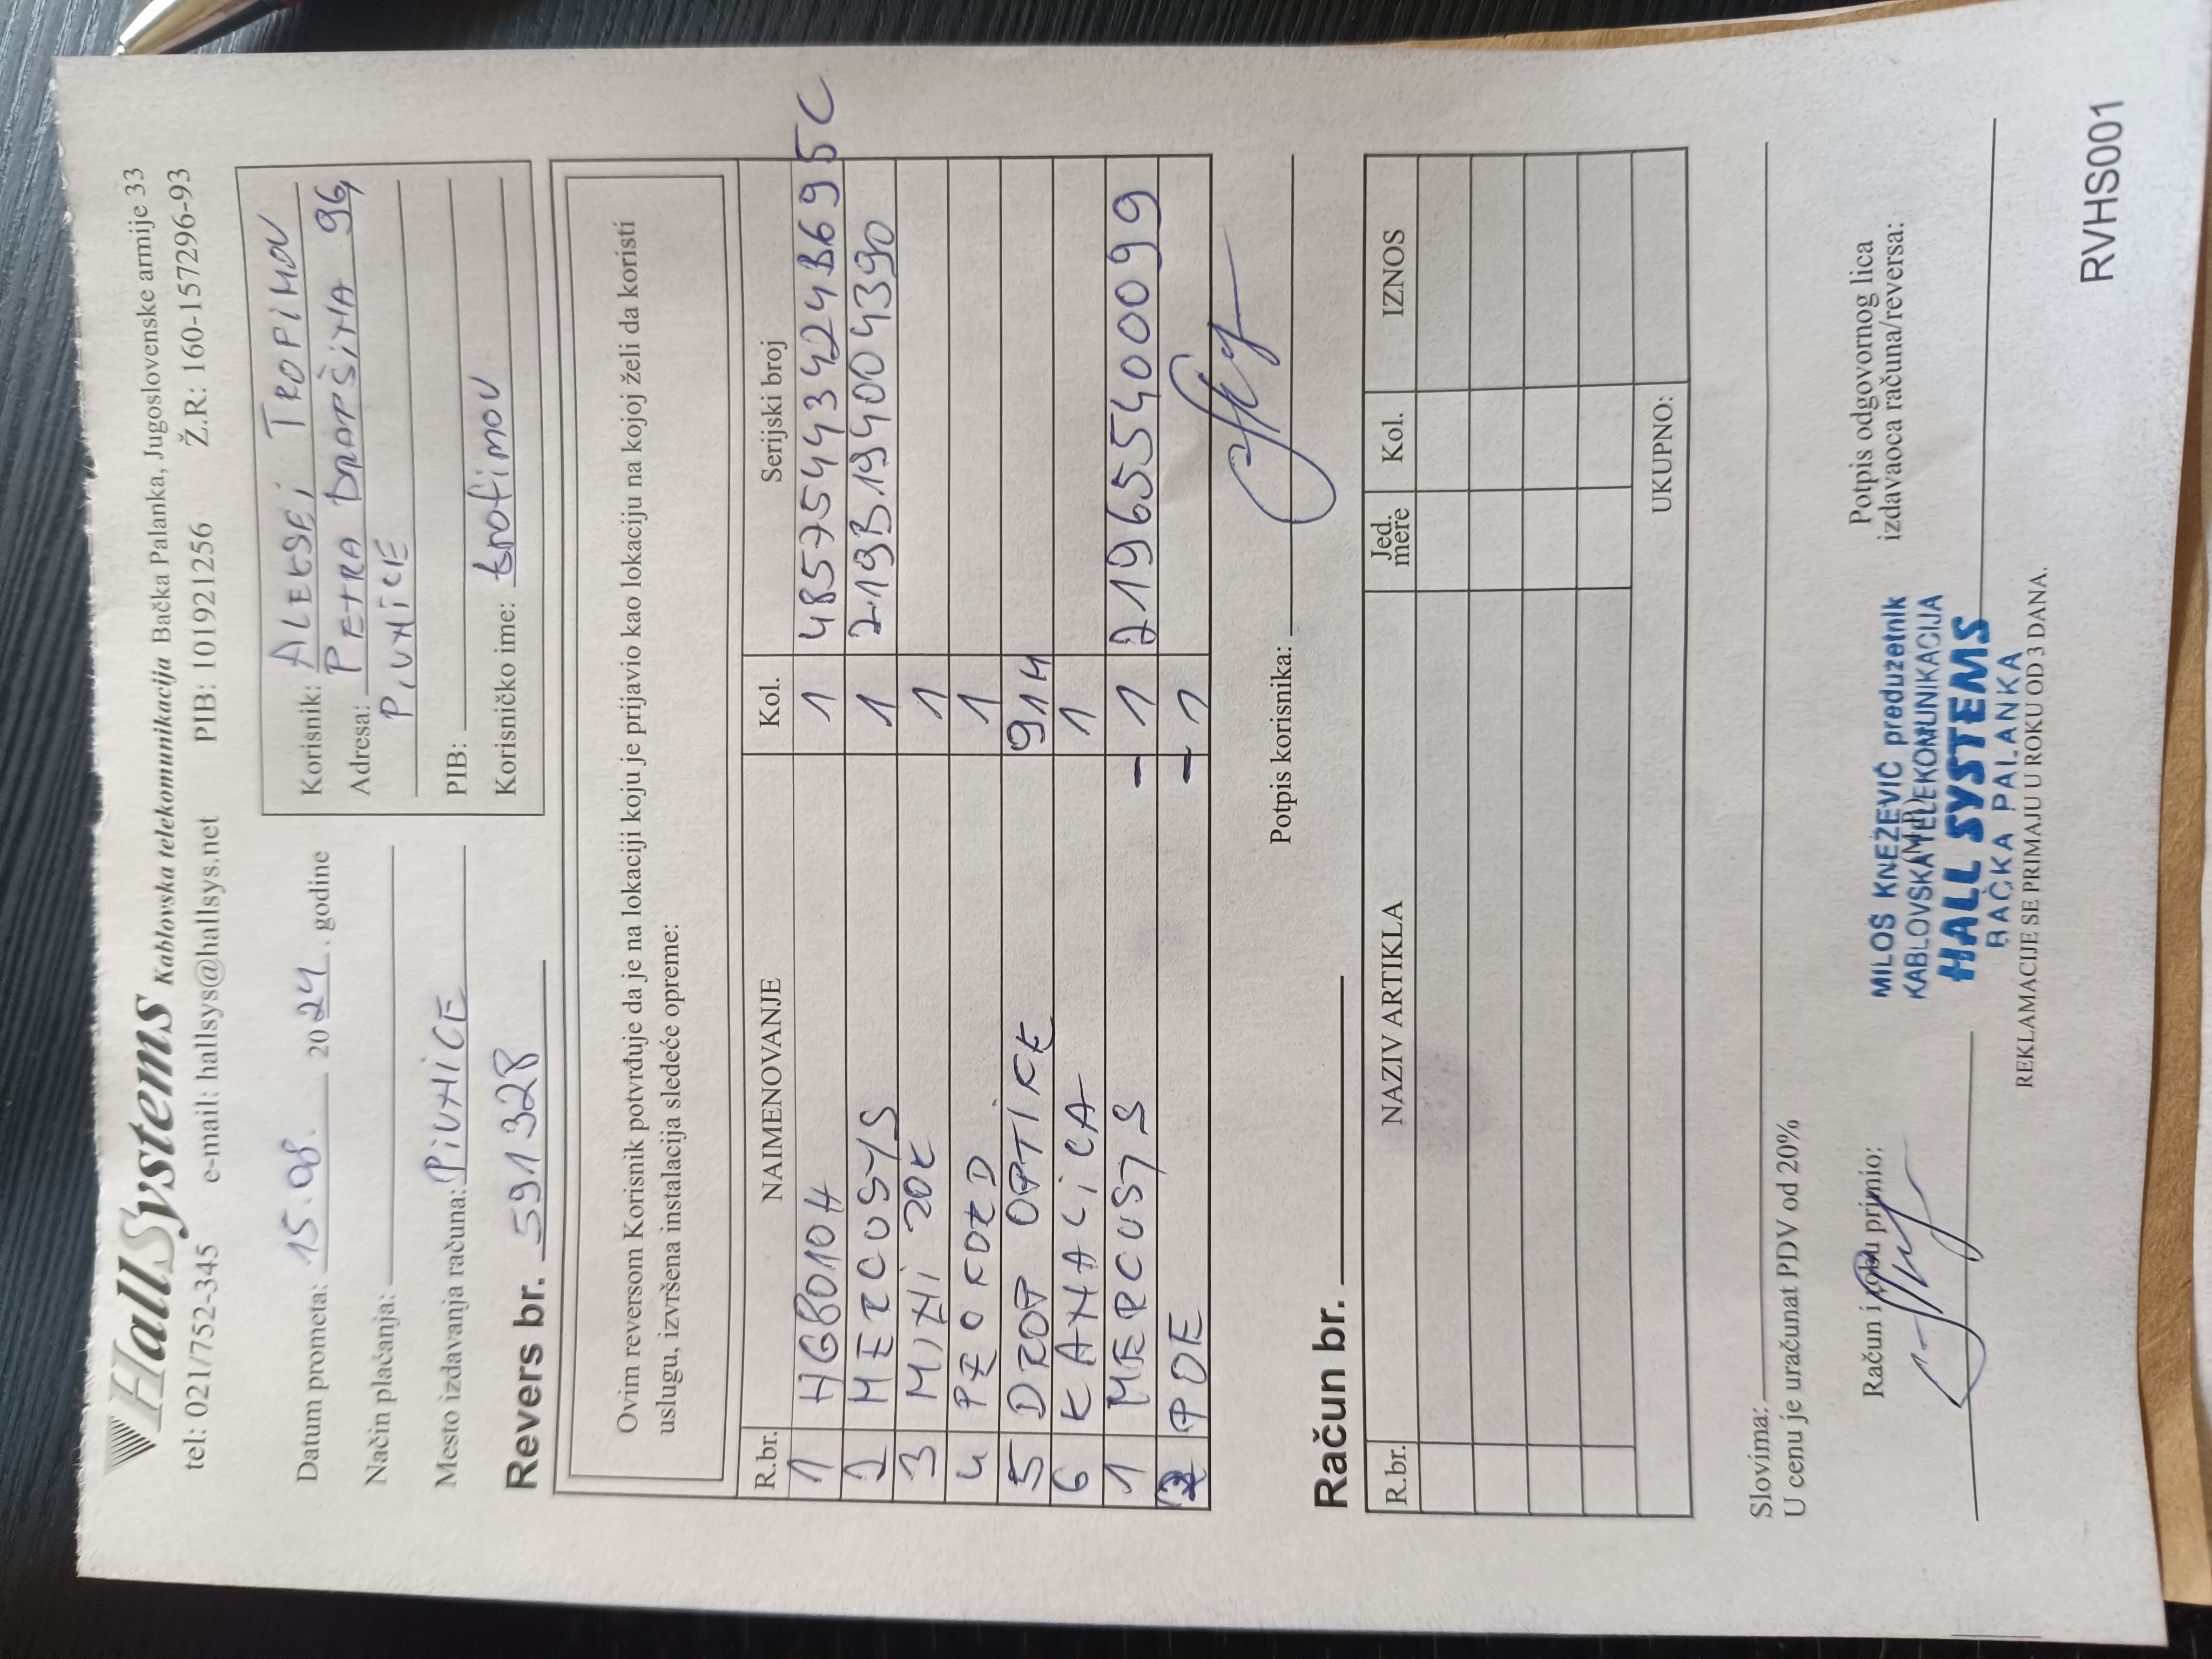 HallSystems Kablovska telekomunikacija Bačka Palanka, Jugoslovenske armije 33
tel: 021/752-345 e-mail: hallsys@hallsys.net PIB: 101921256 Ž.R.: 160-157296-93
Datum prometa: 15.08. 2024. godine
Način plaćanja:
Mesto izdavanja računa: PIVNICE
Korisnik: ALEKSEI TROFIMOV
Adresa: PETRA DRAPŠINA 96,
PIVNICE
PIB:
Korisničko ime: trofimov
Revers br. 591328
Ovim reversom Korisnik potvrđuje da je na lokaciji koju je prijavio kao lokaciju na kojoj želi da koristi
uslugu, izvršena instalacija sledeće opreme:
R.br. NAIMENOVANJE Kol. Serijski broj
1 HG8010H 1 48575443424B695C
2 MERCUSYS 1 219B194004390
3 MINI ZOK 1
4 PROFORD 1
5 DROP OPTIKE 91M
6 KANALICA 1
1 MERCUSYS - 1 2196554000099
2 POE - 1
Potpis korisnika:
Račun br.
R.br. NAZIV ARTIKLA Jed. mere Kol. IZNOS
UKUPNO:
Slovima:
U cenu je uračunat PDV od 20%
Račun i robu primio:
(M.P.)
Potpis odgovornog lica
izdavaoca računa/reversa:
MILOŠ KNEŽEVIĆ preduzetnik
KABLOVSKA TELEKOMUNIKACIJA
HALL SYSTEMS
BAČKA PALANKA
REKLAMACIJE SE PRIMAJU U ROKU OD 3 DANA.
RVHS001